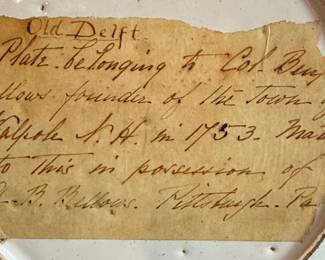 Old Delft
Plate belonging to Col. Benj
ellows founder of the Town of
Walpole N.H. in 1753. Mate
to this in possession of
B. Bellows. Pittsburgh. Pa